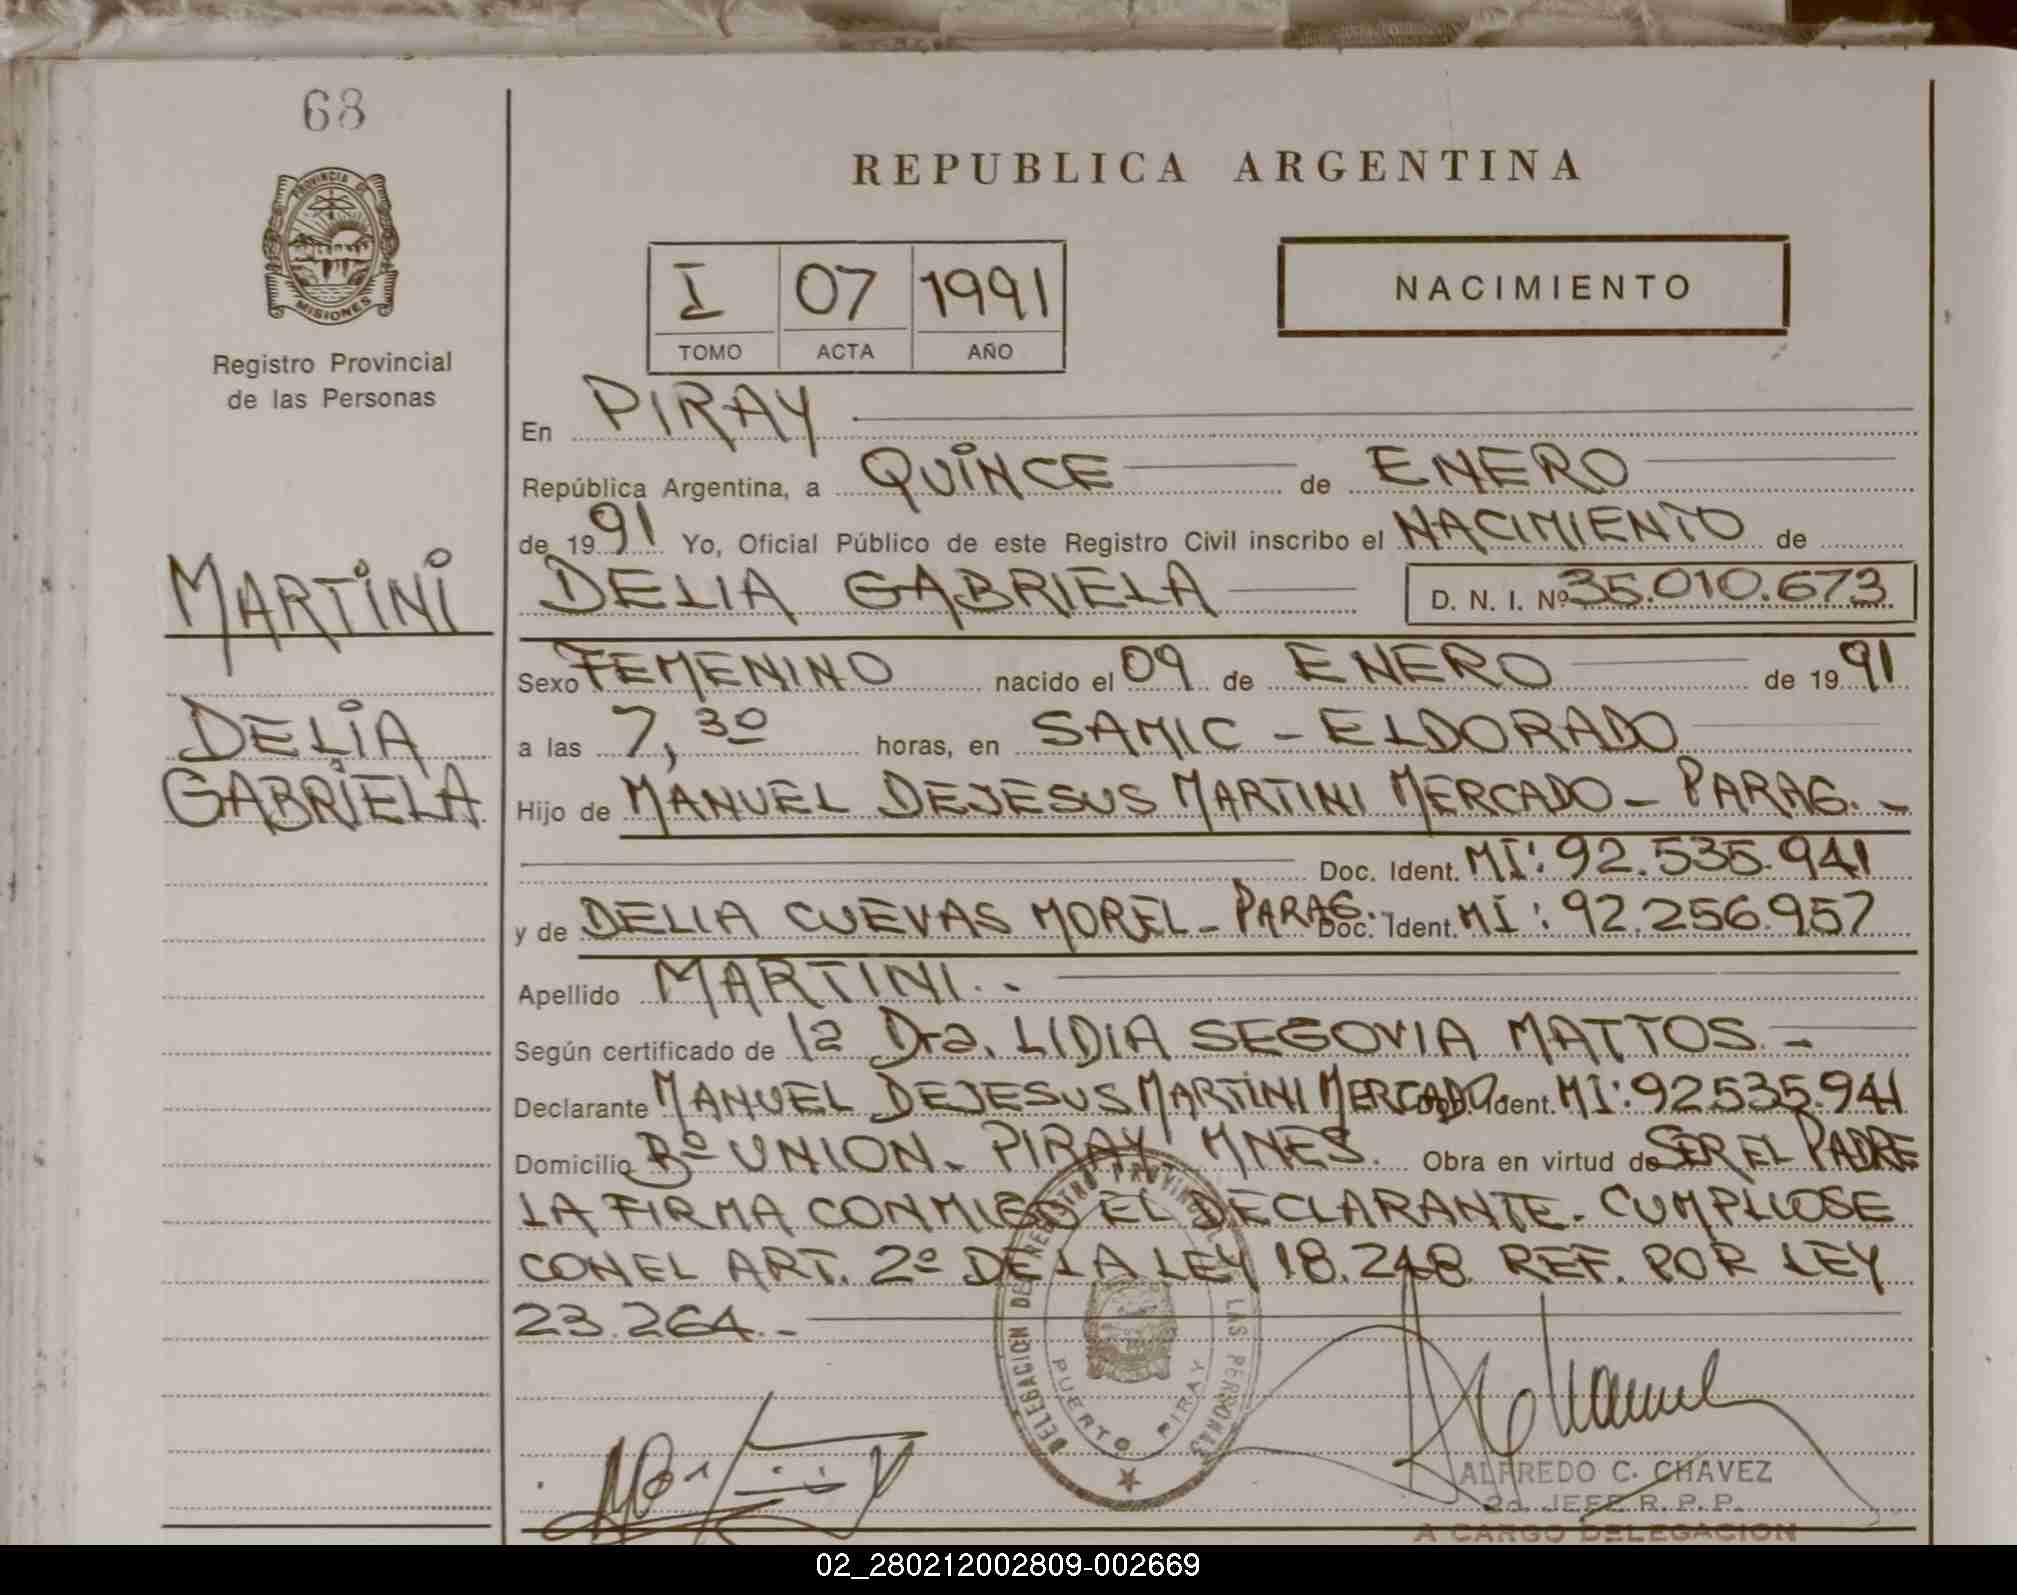 68
REPUBLICA ARGENTINA
PROVINCIA DE
MISIONES
Registro Provincial
de las Personas
I 07 1991
TOMO ACTA AÑO
NACIMIENTO
En PIRAY
República Argentina, a QUINCE de ENERO
de 1991 Yo, Oficial Público de este Registro Civil inscribo el NACIMIENTO de
DELIA GABRIELA D. N. I. Nº 35.010.673
MARTINI
DELIA
GABRIELA
Sexo FEMENINO nacido el 09 de ENERO de 1991
a las 7,30 horas, en SAMIC - ELDORADO
Hijo de MANUEL DEJESUS MARTINI MERCADO - PARAG. -
Doc. Ident. MI: 92.535.941
y de DELIA CUEVAS MOREL - PARAG. - Doc. Ident. MI: 92.256.957
Apellido MARTINI. -
Según certificado de la Dra. LIDIA SEGOVIA MATTOS. -
Declarante MANUEL DEJESUS MARTINI MERCADO. Doc. Ident. MI: 92535.941
Domicilio Bº UNION - PIRAY. MNES. Obra en virtud de SER EL PADRE
LA FIRMA CONMIGO EL DECLARANTE. CUMPLIOSE
CON EL ART. 2º DE LA LEY 18.248 REF. POR LEY
23.264. -
DELEGACION DEL REGISTRO PROVINCIAL DE LAS PERSONAS
PUERTO PIRAY
ALFREDO C. CHAVEZ
2do JEFE R. P. P.
A CARGO DELEGACION
02_280212002809-002669